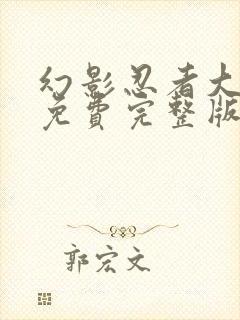 幻影忍者大
免費完整版
郭宏文